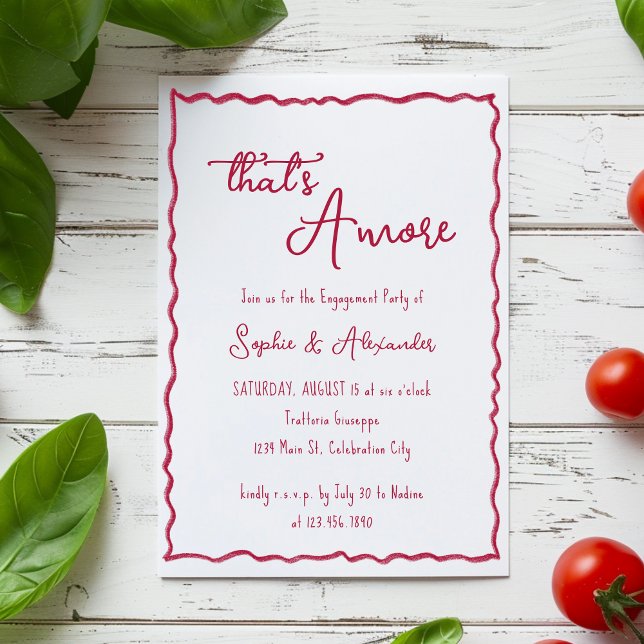 that's
Amore
Join us for the Engagement Party of
Sophie & Alexander
SATURDAY, AUGUST 15 at six o'clock
Trattoria Giuseppe
1234 Main St, Celebration City
kindly r.s.v.p. by July 30 to Nadine
at 123.456.7890